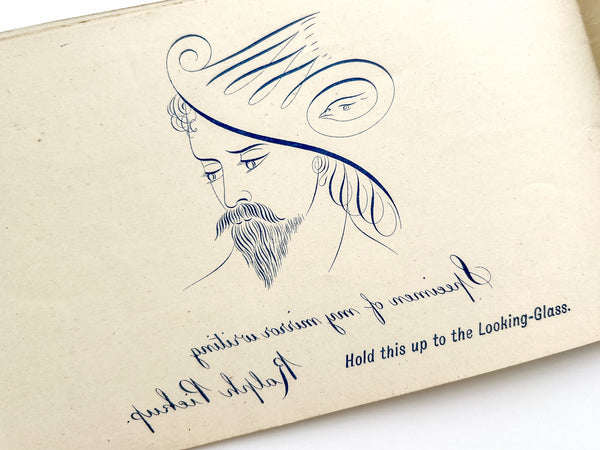 Specimen of my mirror writing
Ralph Pickup.
Hold this up to the Looking-Glass.